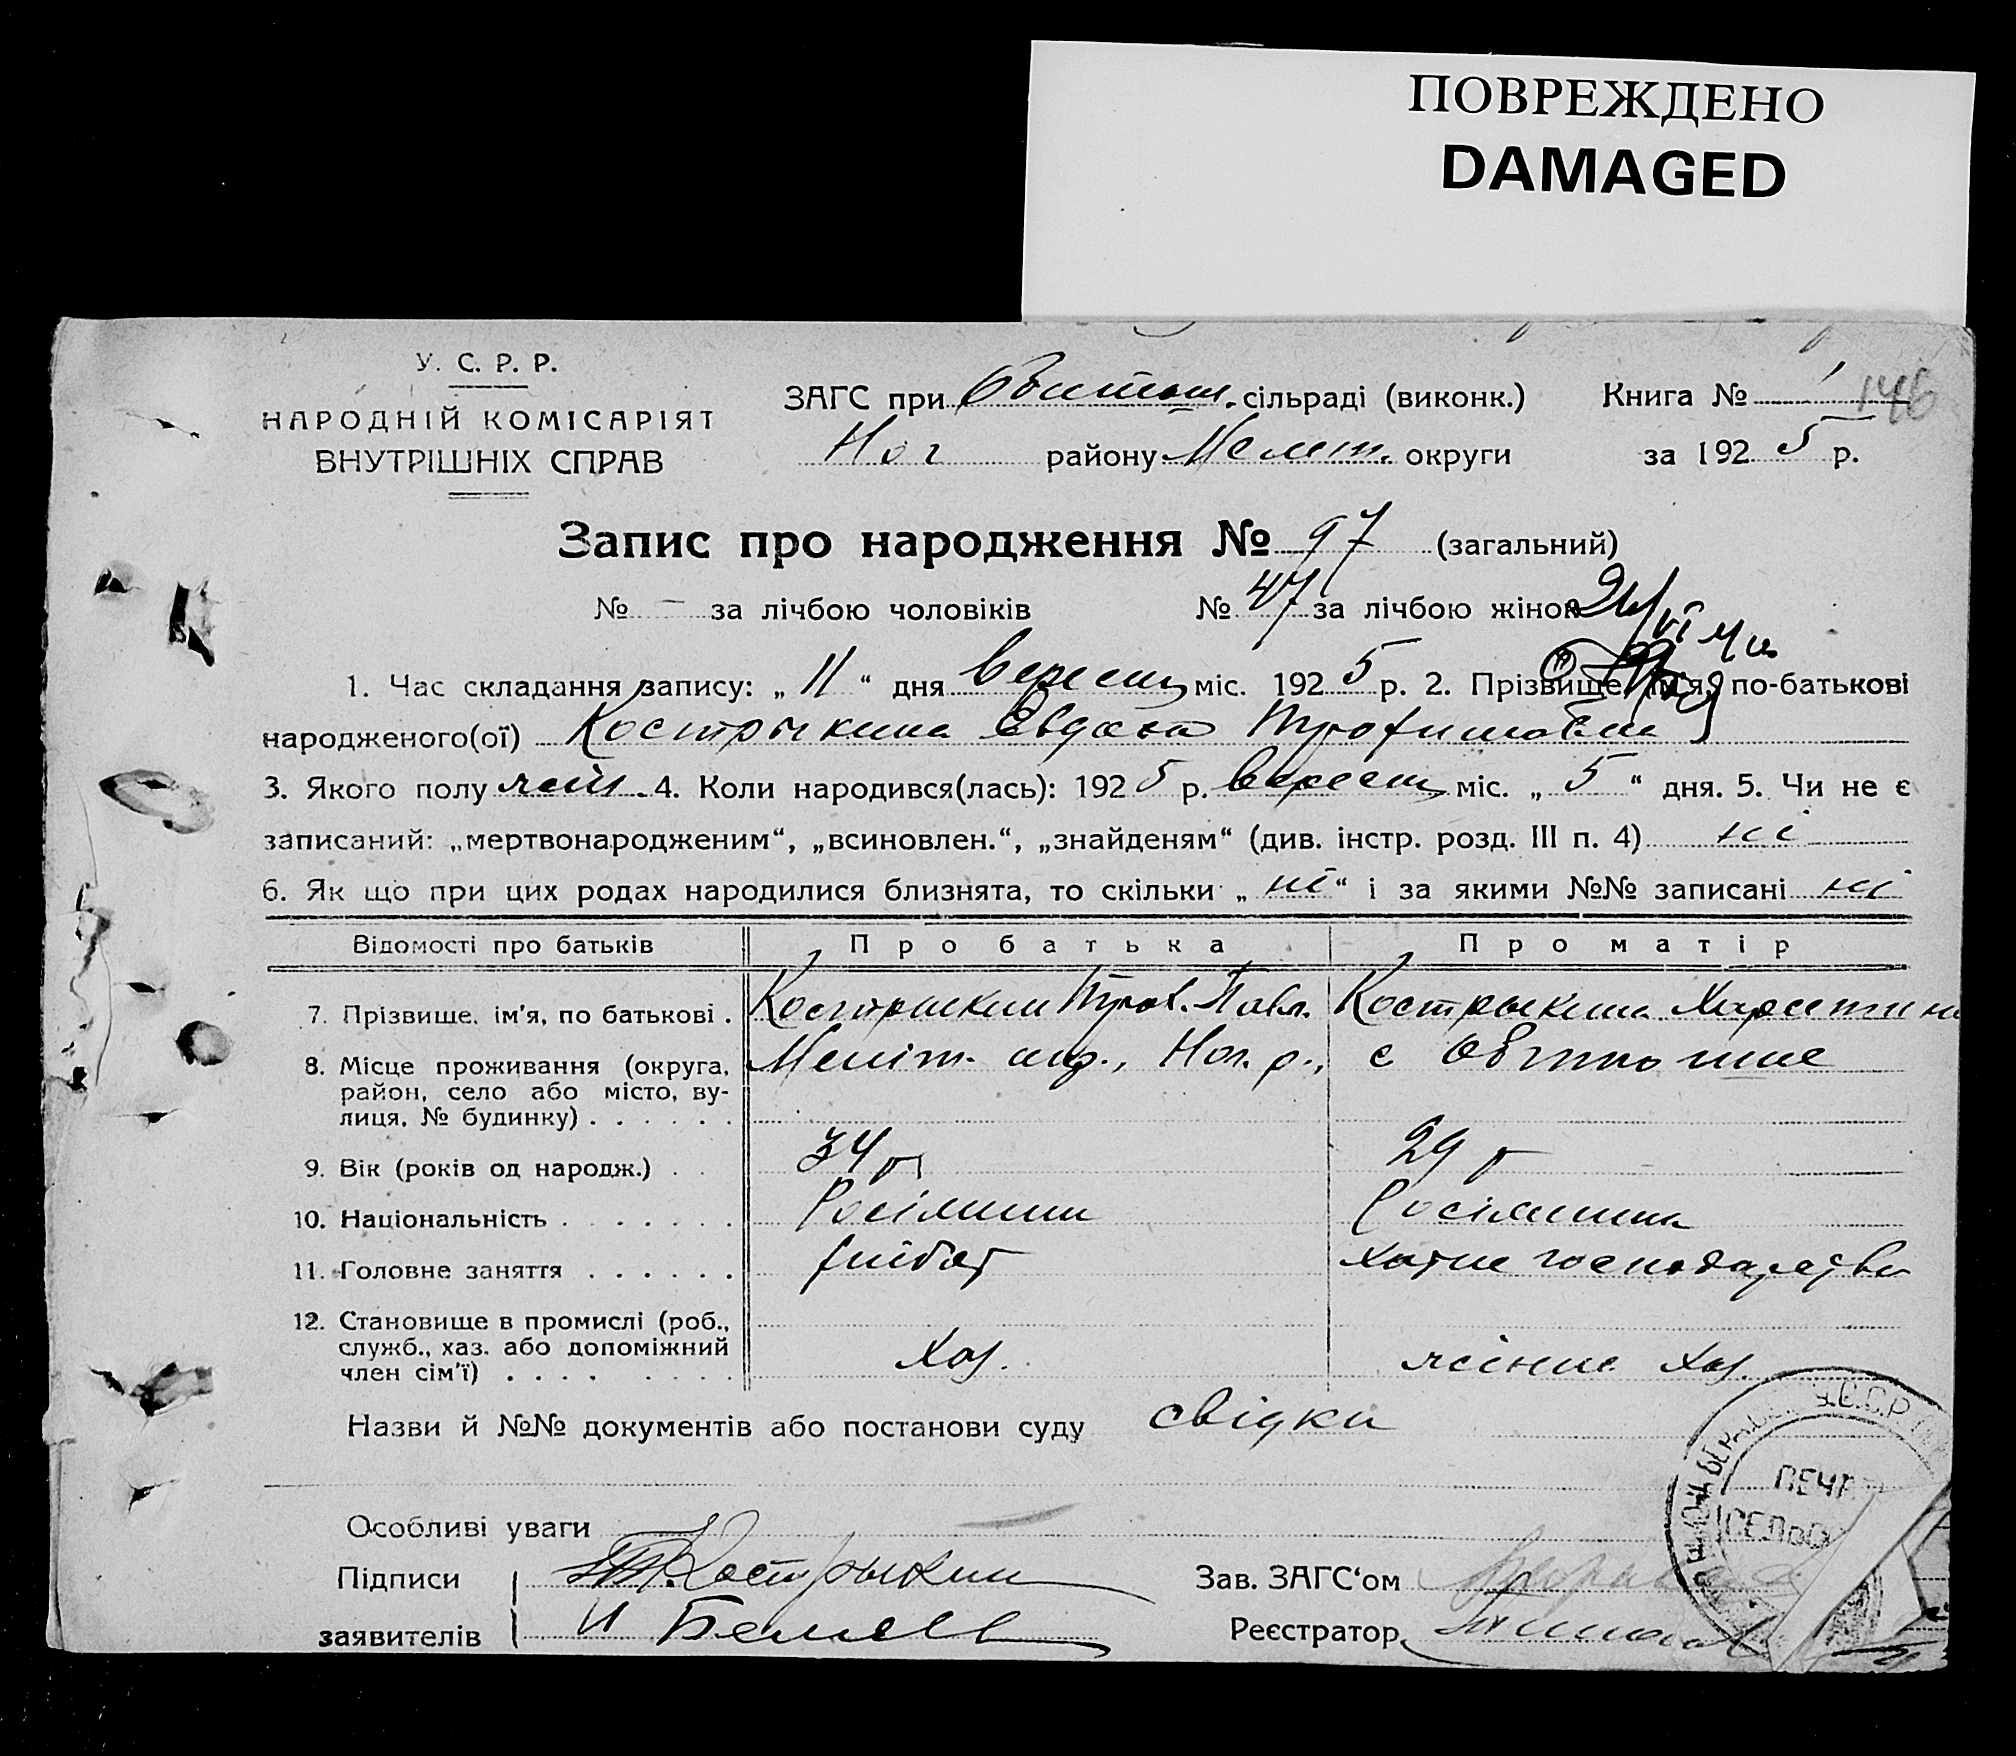 ПОВРЕЖДЕНО
DAMAGED
У. С. Р. Р.
НАРОДНІЙ КОМІСАРІЯТ
ВНУТРІШНІХ СПРАВ
ЗАГС при сільраді (виконк.) Книга № 1 146
Ног району Меліт. округи за 1925 р.
Запис про народження № 97 (загальний)
№ – за лічбою чоловіків № 47 за лічбою жінок
1. Час складання запису: „ 11 “ дня вересня міс. 1925 р. 2. Прізвище, ім'я, по-батькові
народженого(ої) Кострыкина Евдокия Трофимовна
3. Якого полу жін. 4. Коли народився(лась): 1925 р. вересня міс. „ 5 “ дня. 5. Чи не є
записаний: „мертвонародженим“, „всиновлен.“, „знайденям“ (див. інстр. розд. III п. 4) ні
6. Як що при цих родах народилися близнята, то скільки „ ні “ і за якими №№ записані ні
Відомості про батьків Про батька Про матір
7. Прізвище, ім'я, по батькові . Кострыкин Троф. Павл. Кострыкина
8. Місце проживання (округа, Меліт. окр., Ног. р.,
район, село або місто, ву-
лиця, № будинку) . . . . . .
9. Вік (років од народж.) . . 34 р 29 р
10. Національність . . . . . . . Росіянин Росіянина
11. Головне заняття . . . . . . хлібор хатне господарство
12. Становище в промислі (роб.,
служб., хаз. або допоміжний
член сім'ї) . . . . . . . . Хаз. Хаз.
Назви й №№ документів або постанови суду свідки
Особливі уваги
Підписи Т. Кострыкин Зав. ЗАГС‘ом
заявителів И Беляев Реєстратор
У.С.С.Р.
ПЕЧА
СЕЛЬС